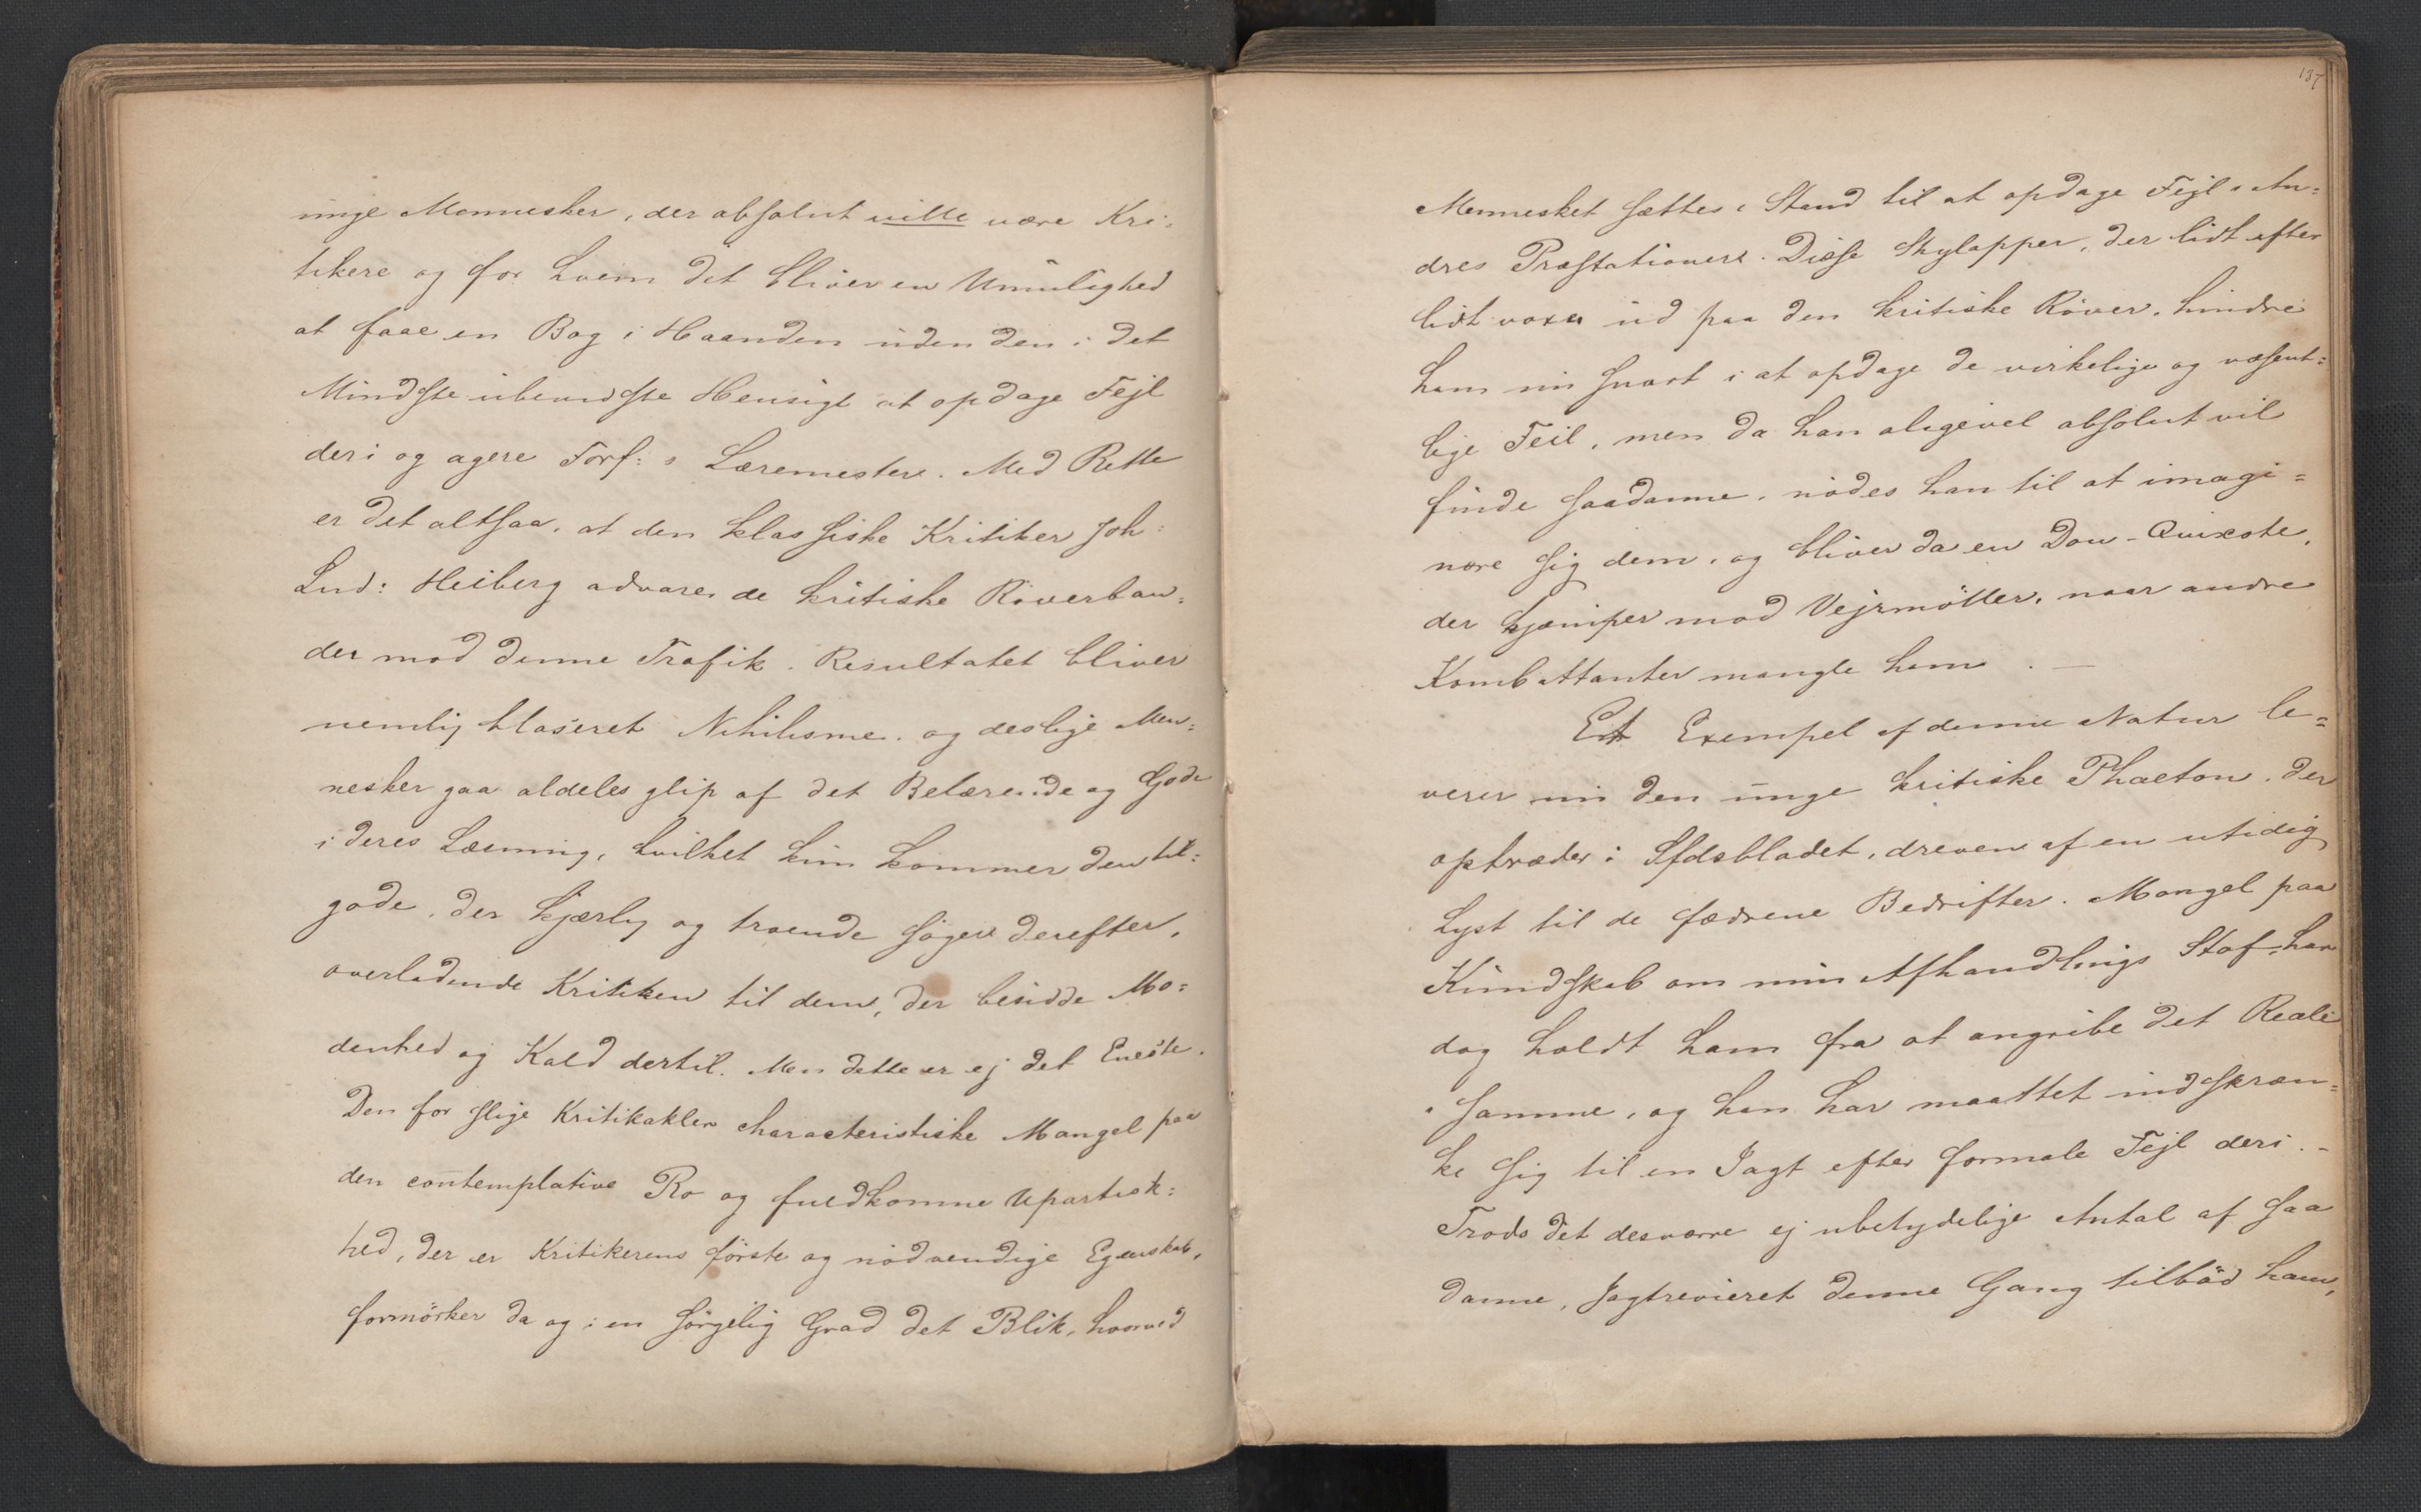 unge Mennesker, der absolut ville være Kri-
tikere og for hvem det bliver en Umulighed
at faae en Bog i Haanden uden den i det
Mindste ubevidste Hensigt at opdage Fejl
deri og agere Forf:s Læremestere. Med Rette
er det altsaa, at den klassiske Kritiker Joh:
Lud: Heiberg advarer de kritiske Röverban-
der mod denne Trafik. Resultatet bliver
nemlig blaseret Nihilisme, og deslige Men-
nesker gaa aldeles glip af det Belærende og Gode
i deres Læsning, hvilket kun kommer den til-
gode, der kjærlig og troende söger derefter,
overladende Kritiken til dem, der besidde Mo-
denhed og Kald dertil. Men dette er ej det Eneste.
Den for slige Kritikakler charakteristiske Mangel paa
den contemplative Ro og fuldkomne Upartisk-
hed, der er Kritikerens förste og nödvendige Egenskab,
formörker da og i en sörgelig Grad det Blik, hvorved
137
Mennesket sættes i Stand til at opdage Fejl i An-
dres Præstationer. Disse Skylapper, der lidt efter
lidt voxe ud paa den kritiske Röver, hindre
ham nu snart i at opdage de virkelige og væsent-
lige Feil, men da han alligevel absolut vil
finde saadanne, nödes han til at imagi-
nere sig dem, og bliver da en Don-Quixote,
der kjæmper mod Vejrmöller, naar andre
Kombattanter mangle ham. —
Et Exempel af denne Natur le-
verer nu den unge kritiske Phaeton, der
optræder i Sfdsbladet, dreven af en utidig
Lyst til de fædrene Bedrifter. Mangel paa
Kundskab om min Afhandlings Stof har
dog holdt ham fra at angribe det Reale
i samme, og han har maattet indskræn-
ke sig til en Jagt efter formale Fejl deri. –
Trods det desværre ej ubetydelige Antal af saa
danne, Jagtrevieret denne Gang tilböd ham,